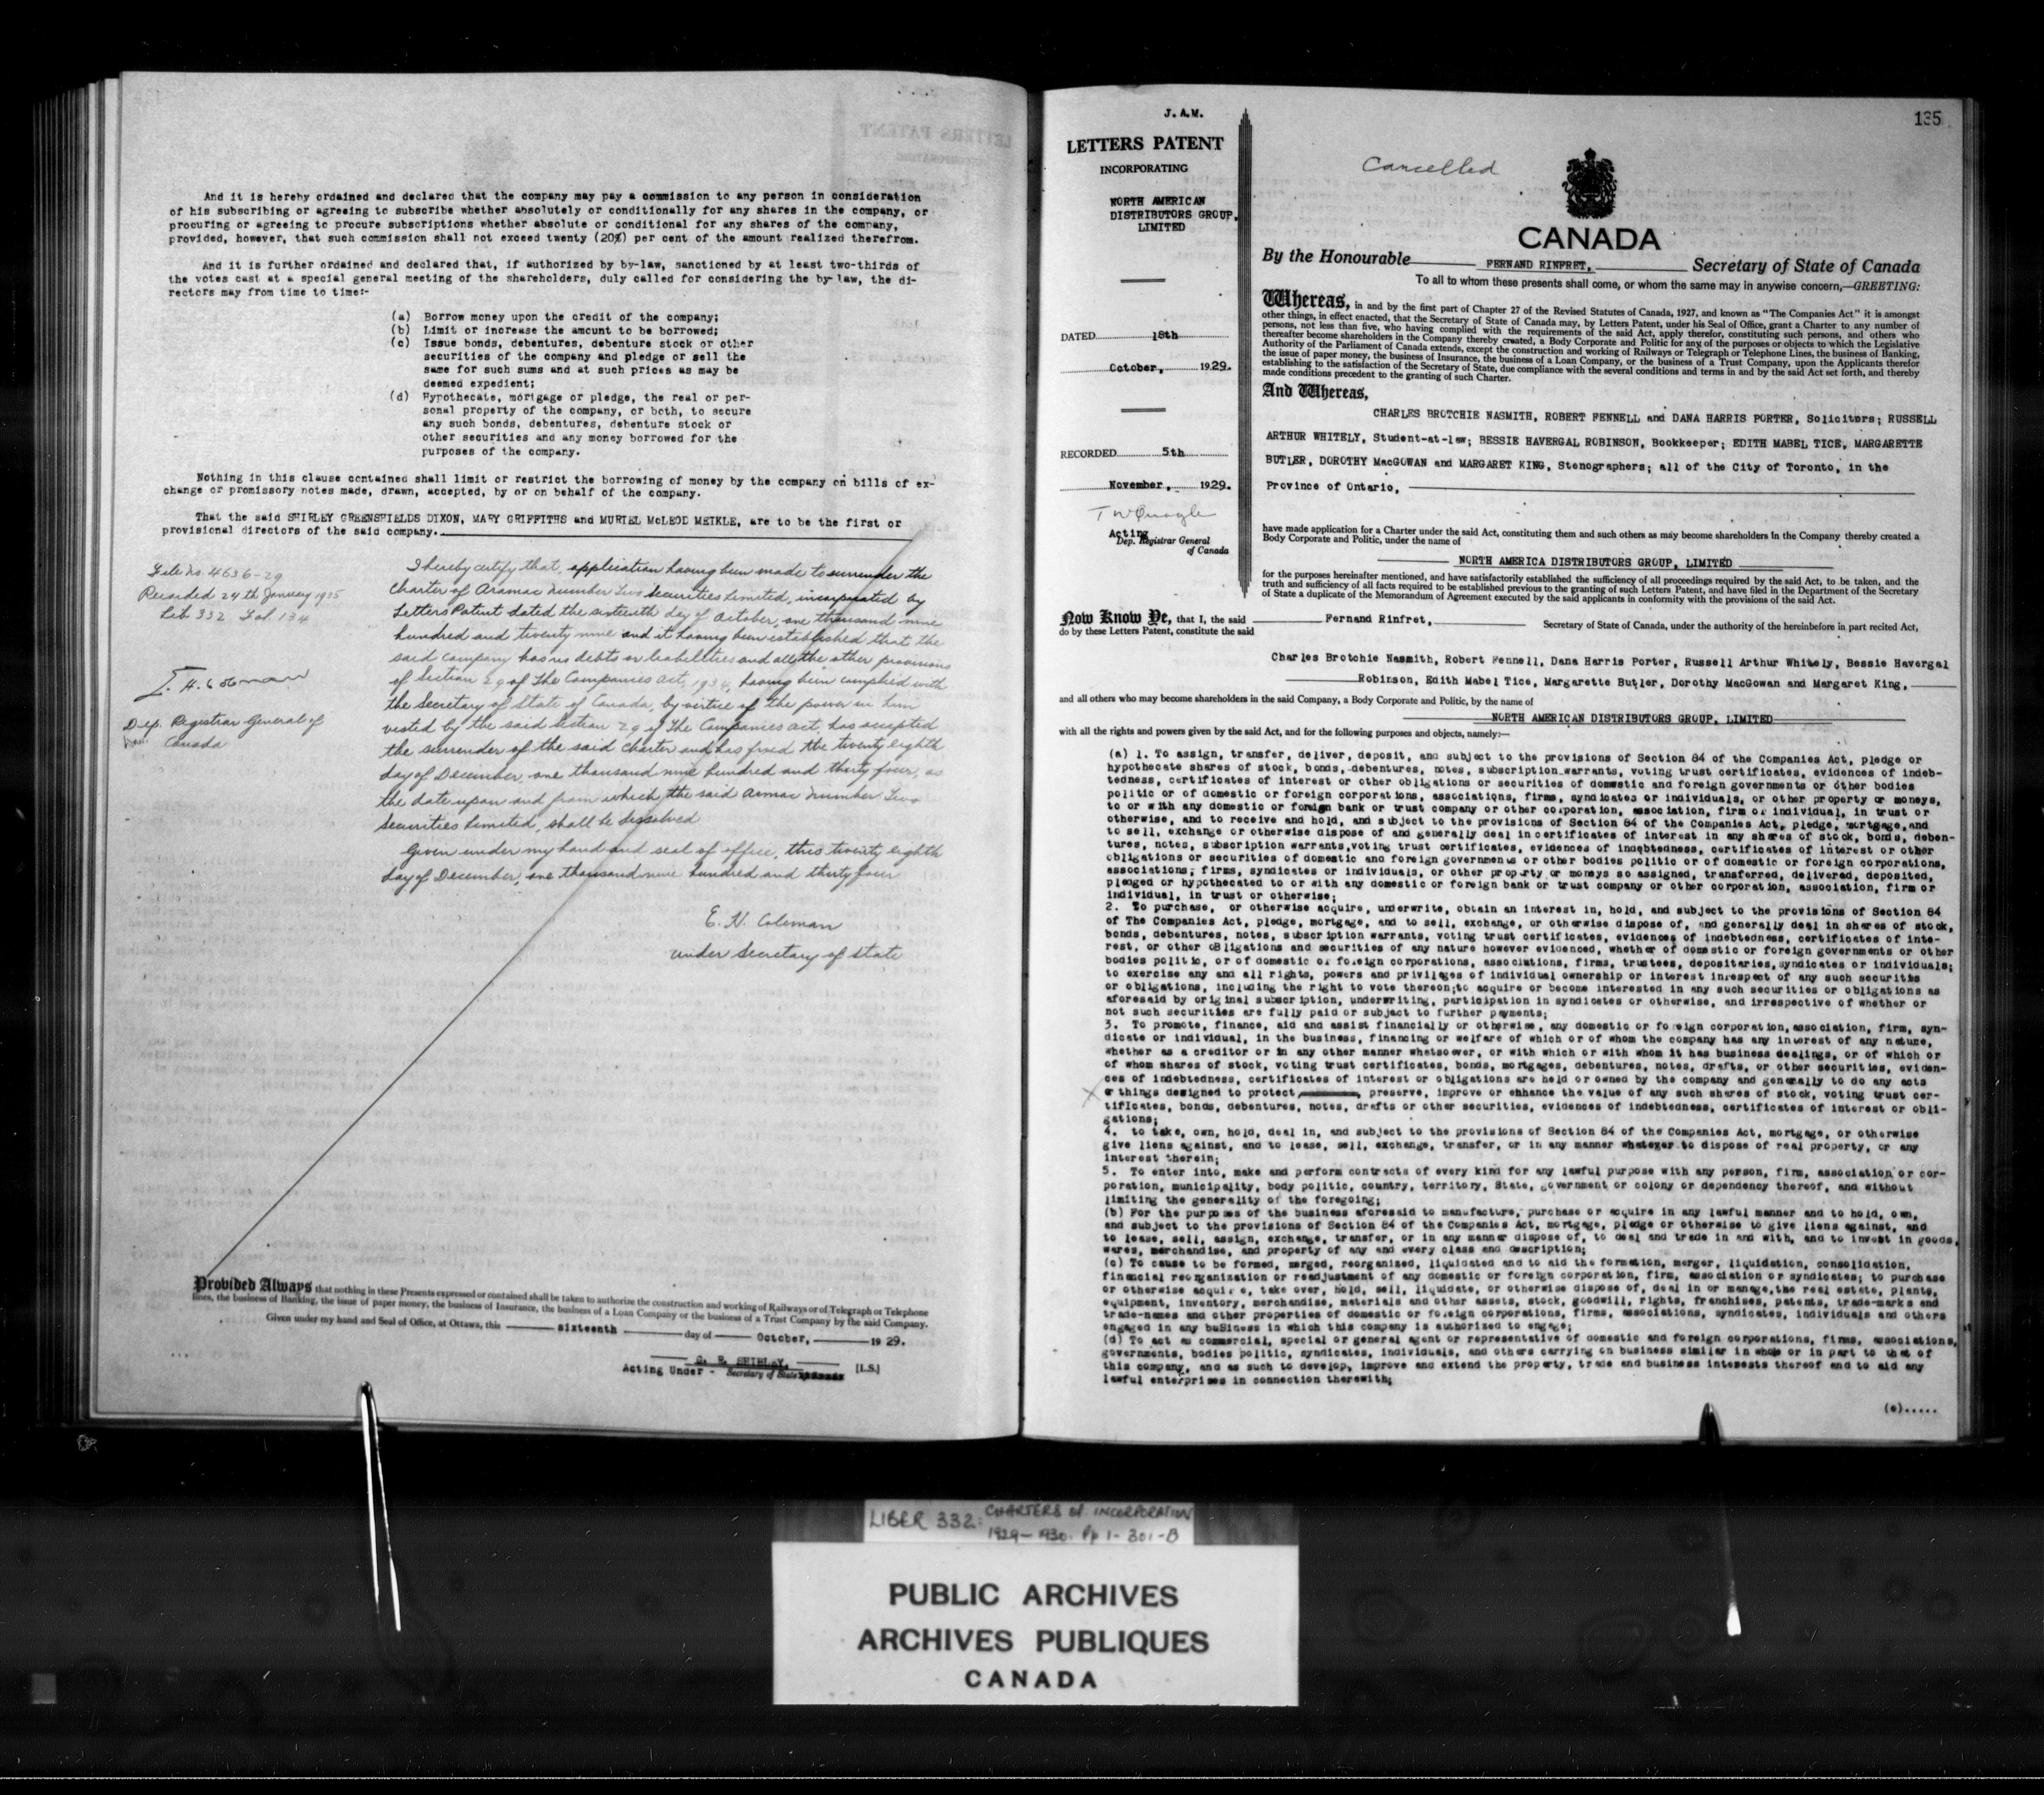 And it is hereby ordained and declared that the company may pay a commission to any person in consideration
of his subscribing or agreeing to subscribe whether absolutely or conditionally for any shares in the company, or
procuring or agreeing to procure subscriptions whether absolute or conditional for any shares of the company,
provided, however, that such commission shall not exceed twenty (20%) per cent of the amount realized therefrom.
And it is further ordained and declared that, if authorized by by-law, sanctioned by at least two-thirds of
the votes cast at a special general meeting of the shareholders, duly called for considering the by-law, the di-
rectors may from time to time:-
(a) Borrow money upon the credit of the company;
(b) Limit or increase the amount to be borrowed;
(c) Issue bonds, debentures, debenture stock or other
securities of the company and pledge or sell the
same for such sums and at such prices as may be
deemed expedient;
(d) Hypothecate, mortgage or pledge, the real or per-
sonal property of the company, or both, to secure
any such bonds, debentures, debenture stock or
other securities and any money borrowed for the
purposes of the company.
Nothing in this clause contained shall limit or restrict the borrowing of money by the company on bills of ex-
change or promissory notes made, drawn, accepted, by or on behalf of the company.
That the said SHIRLEY GREENSHIELDS DIXON, MARY GRIFFITHS and MURIEL McLEOD MEIKLE, are to be the first or
provisional directors of the said company.
File No. 4636-29
Recorded 24th January 1935
Lib 332 Fol. 134
Dep. Registrar General of
Canada
I hereby certify that, application having been made to surrender the
Charter of Aramac Number Two Securities Limited, incorporated by
Letters Patent dated the sixteenth day of October, one thousand nine
hundred and twenty nine and it having been established that the
said company has no debts or liabilities and all the other provisions
of Section 29 of The Companies Act, 1934, having been complied with
the Secretary of State of Canada, by virtue of the power in him
vested by the said Section 29 of The Companies Act, has accepted
the surrender of the said charter and has fixed the twenty eighth
day of December, one thousand nine hundred and thirty four, as
the date upon and from which the said Aramac Number Two
Securities Limited, shall be dissolved
Given under my hand and seal of office, this twenty eighth
day of December, one thousand nine hundred and thirty four
E. H. Coleman
Under Secretary of State
Provided Always that nothing in these Presents expressed or contained shall be taken to authorize the construction and working of Railways or of Telegraph or Telephone
lines, the business of Banking, the issue of paper money, the business of Insurance, the business of a Loan Company or the business of a Trust Company by the said Company.
Given under my hand and Seal of Office, at Ottawa, this sixteenth day of October, 1929.
G. R. SHIBLEY,
Acting Under - Secretary of State [L.S.]
135
J. A. M.
LETTERS PATENT
INCORPORATING
NORTH AMERICAN
DISTRIBUTORS GROUP,
LIMITED
DATED 18th
October, 1929.
RECORDED 5th
November, 1929.
Acting
Dep. Registrar General
of Canada
Cancelled
CANADA
By the Honourable FERNAND RINFRET, Secretary of State of Canada
To all to whom these presents shall come, or whom the same may in anywise concern,—GREETING:
Whereas, in and by the first part of Chapter 27 of the Revised Statutes of Canada, 1927, and known as "The Companies Act" it is amongst
other things, in effect enacted, that the Secretary of State of Canada may, by Letters Patent, under his Seal of Office, grant a Charter to any number of
persons, not less than five, who having complied with the requirements of the said Act, apply therefor, constituting such persons, and others who
thereafter become shareholders in the Company thereby created, a Body Corporate and Politic for any of the purposes or objects to which the Legislative
Authority of the Parliament of Canada extends, except the construction and working of Railways or Telegraph or Telephone Lines, the business of Banking,
the issue of paper money, the business of Insurance, the business of a Loan Company, or the business of a Trust Company, upon the Applicants therefor
establishing to the satisfaction of the Secretary of State, due compliance with the several conditions and terms in and by the said Act set forth, and thereby
made conditions precedent to the granting of such Charter.
And Whereas,
CHARLES BROTCHIE NASMITH, ROBERT FENNELL and DANA HARRIS PORTER, Solicitors; RUSSELL
ARTHUR WHITELY, Student-at-law; BESSIE HAVERGAL ROBINSON, Bookkeeper; EDITH MABEL TICE, MARGARETTE
BUTLER, DOROTHY MacGOWAN and MARGARET KING, Stenographers; all of the City of Toronto, in the
Province of Ontario,
have made application for a Charter under the said Act, constituting them and such others as may become shareholders in the Company thereby created a
Body Corporate and Politic, under the name of
NORTH AMERICA DISTRIBUTORS GROUP, LIMITED
for the purposes hereinafter mentioned, and have satisfactorily established the sufficiency of all proceedings required by the said Act, to be taken, and the
truth and sufficiency of all facts required to be established previous to the granting of such Letters Patent, and have filed in the Department of the Secretary
of State a duplicate of the Memorandum of Agreement executed by the said applicants in conformity with the provisions of the said Act.
Now Know Ye, that I, the said Fernand Rinfret, Secretary of State of Canada, under the authority of the hereinbefore in part recited Act,
do by these Letters Patent, constitute the said
Charles Brotchie Nasmith, Robert Fennell, Dana Harris Porter, Russell Arthur Whitely, Bessie Havergal
Robinson, Edith Mabel Tice, Margarette Butler, Dorothy MacGowan and Margaret King,
and all others who may become shareholders in the said Company, a Body Corporate and Politic, by the name of
NORTH AMERICAN DISTRIBUTORS GROUP, LIMITED
with all the rights and powers given by the said Act, and for the following purposes and objects, namely:—
(a) 1. To assign, transfer, deliver, deposit, and subject to the provisions of Section 84 of the Companies Act, pledge or
hypothecate shares of stock, bonds, debentures, notes, subscription warrants, voting trust certificates, evidences of indeb-
tedness, certificates of interest or other obligations or securities of domestic and foreign governments or other bodies
politic or of domestic or foreign corporations, associations, firms, syndicates or individuals, or other property or moneys,
to or with any domestic or foreign bank or trust company or other corporation, association, firm or individual, in trust or
otherwise, and to receive and hold, and subject to the provisions of Section 84 of the Companies Act, pledge, mortgage, and
to sell, exchange or otherwise dispose of and generally deal in certificates of interest in any shares of stock, bonds, deben-
tures, notes, subscription warrants, voting trust certificates, evidences of indebtedness, certificates of interest or other
obligations or securities of domestic and foreign governments or other bodies politic or of domestic or foreign corporations,
associations; firms, syndicates or individuals, or other property or moneys so assigned, transferred, delivered, deposited,
pledged or hypothecated to or with any domestic or foreign bank or trust company or other corporation, association, firm or
individual, in trust or otherwise;
2. To purchase, or otherwise acquire, underwrite, obtain an interest in, hold, and subject to the provisions of Section 84
of The Companies Act, pledge, mortgage, and to sell, exchange, or otherwise dispose of, and generally deal in shares of stock,
bonds, debentures, notes, subscription warrants, voting trust certificates, evidences of indebtedness, certificates of inte-
rest, or other obligations and securities of any nature however evidenced, whether of domestic or foreign governments or other
bodies politic, or of domestic or foreign corporations, associations, firms, trustees, depositaries, syndicates or individuals;
to exercise any and all rights, powers and privilages of individual ownership or interest inrespect of any such securities
or obligations, including the right to vote thereon;to acquire or become interested in any such securities or obligations as
aforesaid by original subscription, underwriting, participation in syndicates or otherwise, and irrespective of whether or
not such securities are fully paid or subject to further payments;
3. To promote, finance, aid and assist financially or otherwise, any domestic or foreign corporation, association, firm, syn-
dicate or individual, in the business, financing or welfare of which or of whom the company has any interest of any nature,
whether as a creditor or in any other manner whatsoever, or with which or with whom it has business dealings, or of which or
of whom shares of stock, voting trust certificates, bonds, mortgages, debentures, notes, drafts, or other securities, eviden-
ces of indebtedness, certificates of interest or obligations are held or owned by the company and generally to do any acts
or things designed to protect, preserve, improve or enhance the value of any such shares of stock, voting trust cer-
tificates, bonds, debentures, notes, drafts or other securities, evidences of indebtedness, certificates of interest or obli-
gations;
4. to take, own, hold, deal in, and subject to the provisions of Section 84 of the Companies Act, mortgage, or otherwise
give liens against, and to lease, sell, exchange, transfer, or in any manner whatever to dispose of real property, or any
interest therein;
5. To enter into, make and perform contracts of every kind for any lawful purpose with any person, firm, association or cor-
poration, municipality, body politic, country, territory, State, government or colony or dependency thereof, and without
limiting the generality of the foregoing;
(b) For the purposes of the business aforesaid to manufacture, purchase or acquire in any lawful manner and to hold, own,
and subject to the provisions of Section 84 of the Companies Act, mortgage, pledge or otherwise to give liens against, and
to lease, sell, assign, exchange, transfer, or in any manner dispose of, to deal and trade in and with, and to invest in goods,
wares, merchandise, and property of any and every class and description;
(c) To cause to be formed, merged, reorganized, liquidated and to aid the formation, merger, liquidation, consolidation,
financial reorganization or readjustment of any domestic or foreign corporation, firm, association or syndicates; to purchase
or otherwise acquire, take over, hold, sell, liquidate, or otherwise dispose of, deal in or manage,the real estate, plants,
equipment, inventory, merchandise, materials and other assets, stock, goodwill, rights, franchises, patents, trade-marks and
trade-names and other properties of domestic or foreign corporations, firms, associations, syndicates, individuals and others
engaged in any business in which this company is authorized to engage;
(d) To act as commercial, special or general agent or representative of domestic and foreign corporations, firms, associations,
governments, bodies politic, syndicates, individuals, and others carrying on business similar in whole or in part to that of
this company, and as such to develop, improve and extend the property, trade and business interests thereof and to aid any
lawful enterprises in connection therewith;
(e).....
LIBER 332: CHARTERS of INCORPORATION
1929-1930. Pp 1-301-B
PUBLIC ARCHIVES
ARCHIVES PUBLIQUES
CANADA